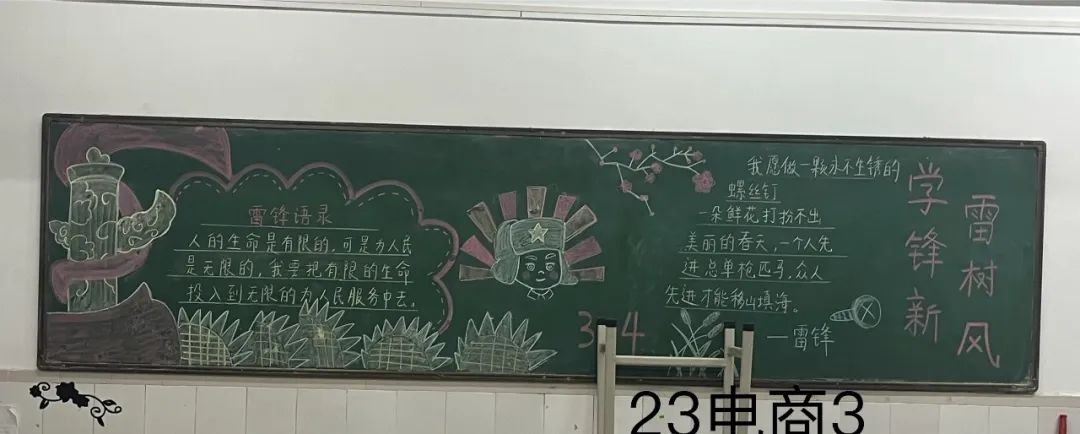 雷锋语录
人的生命是有限的,可是为人民
是无限的,我要把有限的生命
投入到无限的为人民服务中去。
3 4
我愿做一颗永不生锈的
螺丝钉
一朵鲜花打扮不出
美丽的春天,一个人先
进总单枪匹马,众人
先进才能移山填海。
—雷锋
学雷锋树新风
23电商3